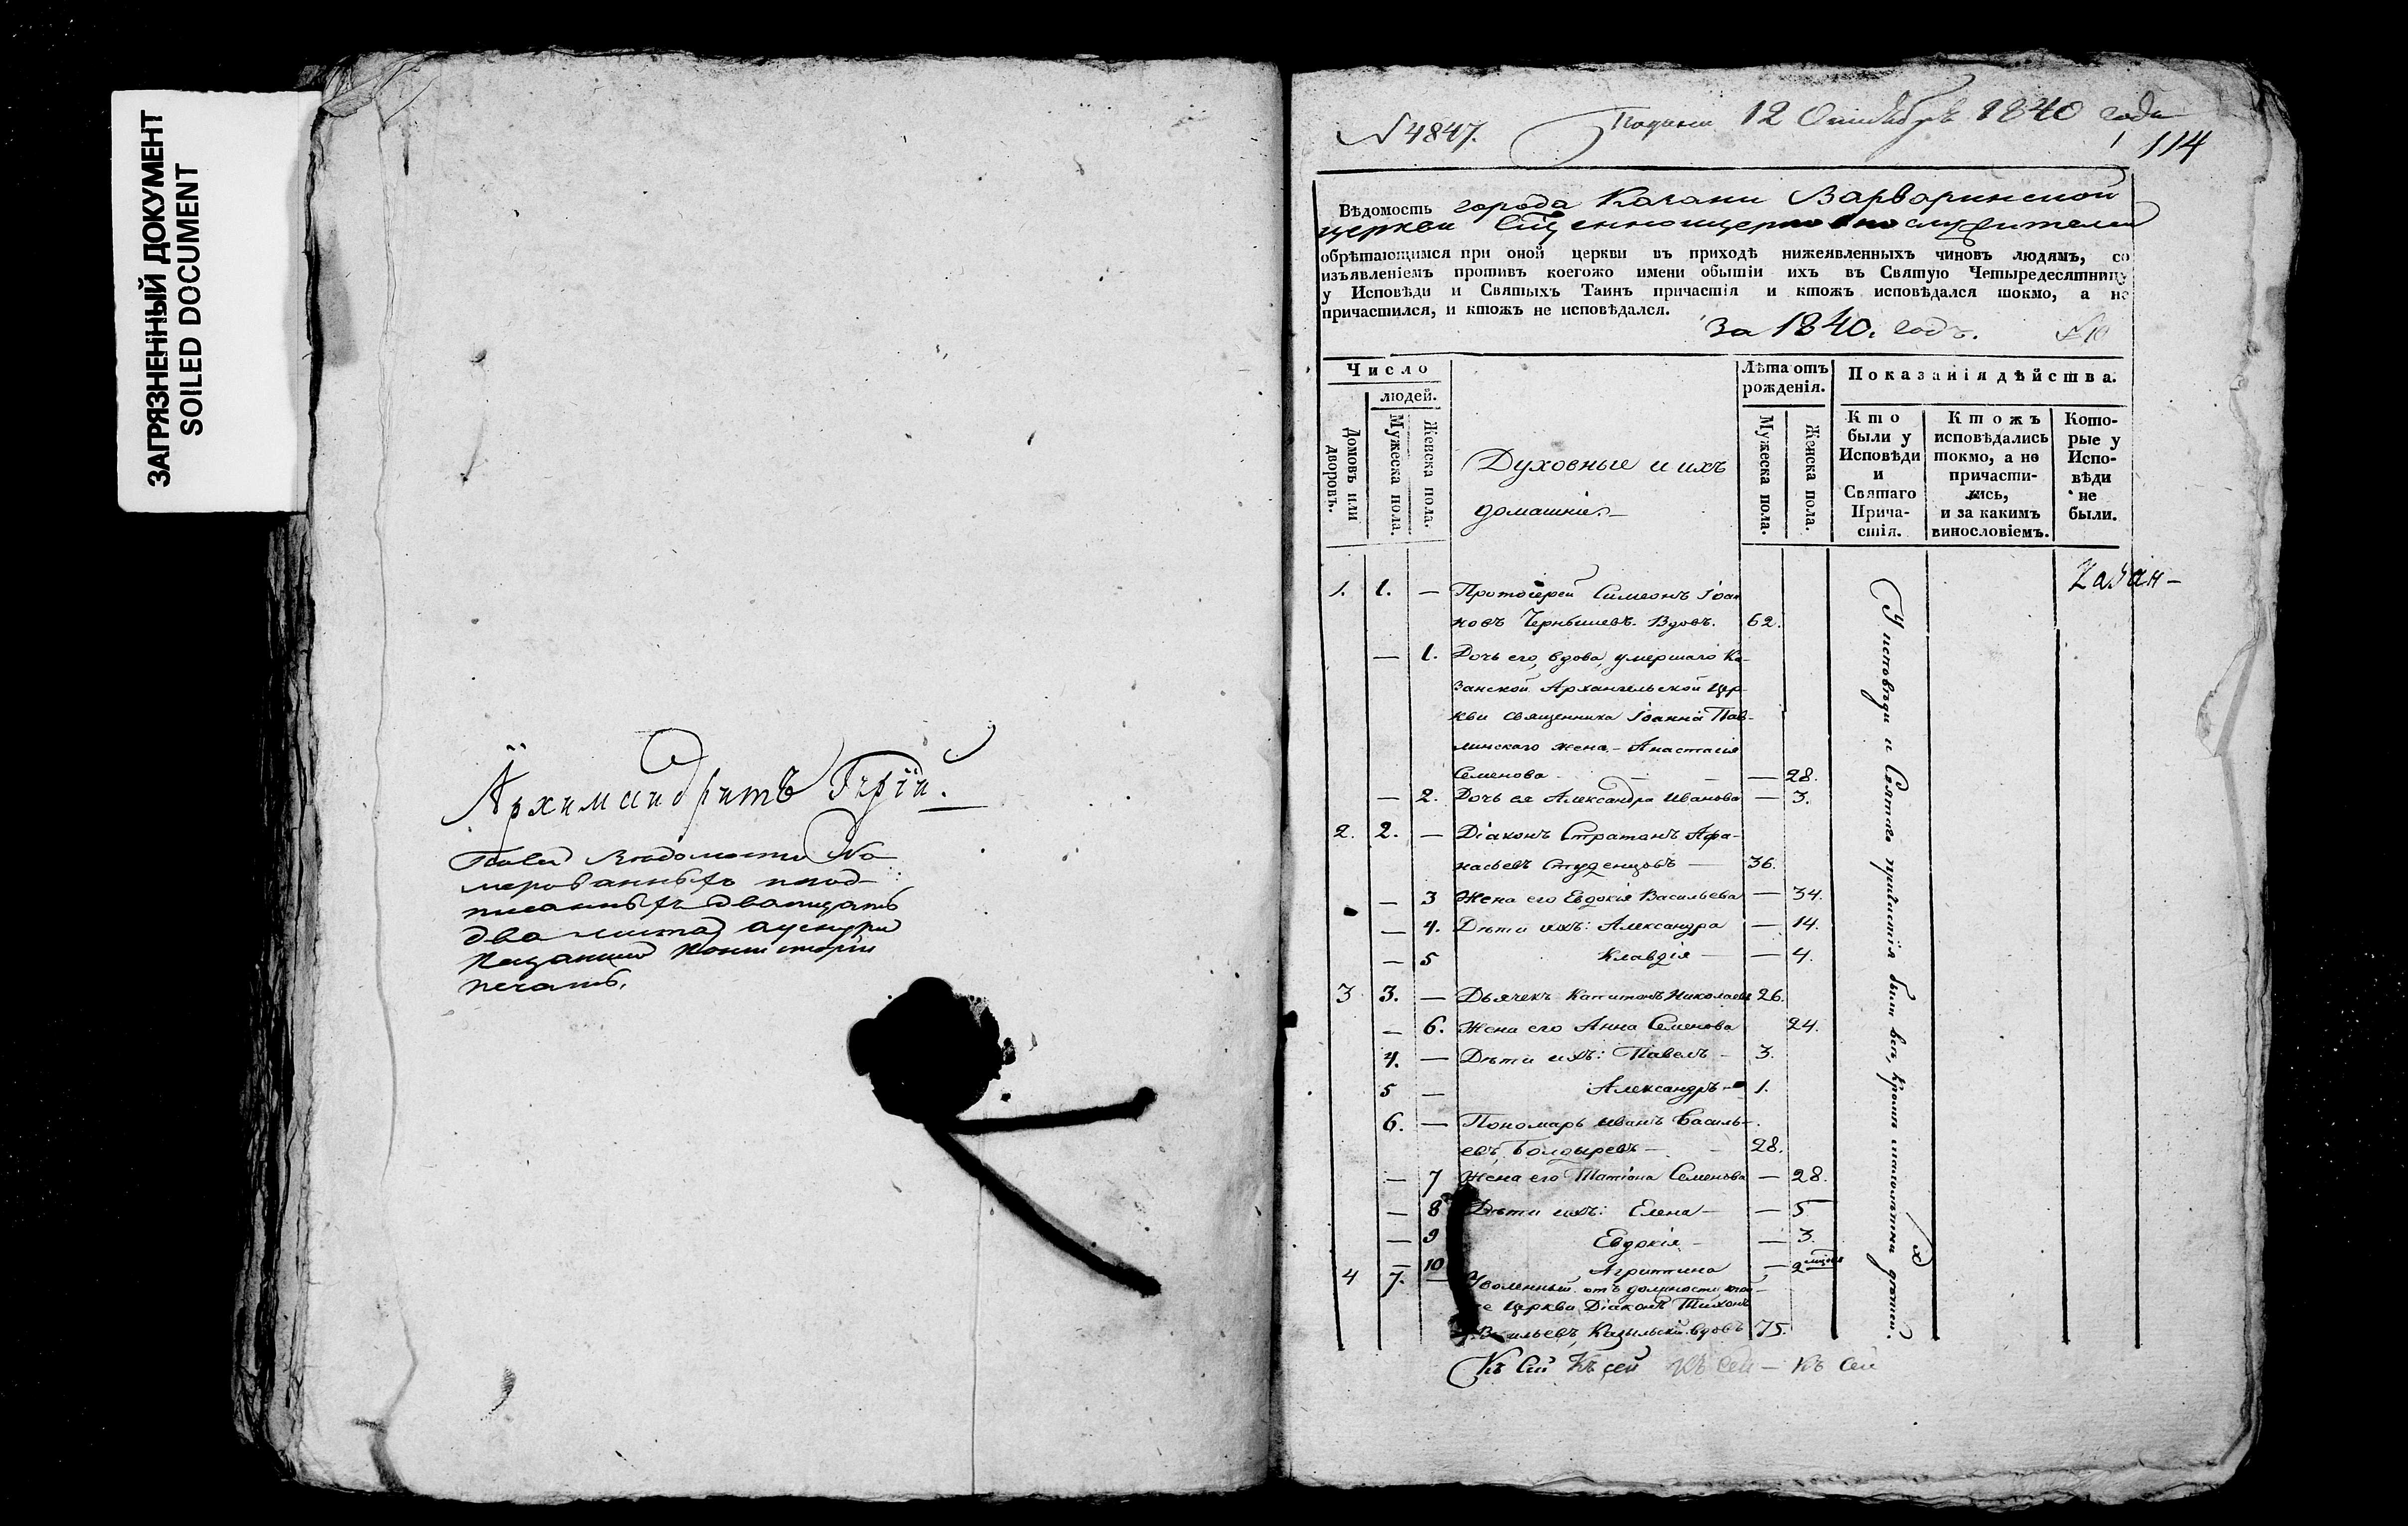 ЗАГРЯЗНЕННЫЙ ДОКУМЕНТ
SOILED DOCUMENT
Архимандритъ Гурій.
два листа
печать.
N 4847.
12 Октября 1840 года
114
Вѣдомость города Казани Варваринской
церкви
обрѣтающимся при оной церкви въ приходѣ нижеявленныхъ чиновъ людямъ, со
изъявленіемъ противъ коегожо имени обытіи ихъ въ Святую Четыредесятницу
у Исповѣди и Святыхъ Таинъ причастія и ктожъ исповѣдался токмо, а не
причастился, и ктожъ не исповѣдался.
За 1840. годъ.
Число
людей.
Домовъ или дворовъ.
Мужеска пола.
Женска пола.
Духовные и ихъ
домашніе.
Лѣта отъ
рожденія.
Мужеска пола.
Женска пола.
Показанія дѣйства.
Кто
были у
Исповѣди
и
Святаго
Прича-
стія.
Ктожъ
исповѣдались
токмо, а не
причасти-
лись,
и за какимъ
винословіемъ.
Кото-
рые у
Испо-
вѣди
не
были.
Казан-
1. 1. — Протоіерей Симеонъ Іоан
новъ Чернышевъ. Вдовъ. 62.
— 1. Дочь его, вдова, умершаго Ка-
занской Архангельской цер-
кви священника Іоанна Пав-
линскаго жена – Анастасія
Семенова — 28.
— 2. Дочь ея Александра Иванова — 3.
2. 2. — Діаконъ Стратонъ Афа-
насьевъ Студенцовъ — 36.
— 3 Жена его Евдокія Васильева — 34.
— 4. Дѣти ихъ: Александра — 14.
— 5 Клавдія — 4.
3 3. — Дьячекъ Капитонъ Николаевъ 26.
— 6. Жена его Анна Семенова 24.
4. — Дѣти ихъ: Павелъ – 3.
5 — Александръ – 1.
6. — Пономарь Иванъ Василь-
евъ Болдыревъ — 28.
— 7 Жена его Татіана Семенова — 28.
— 8 Дѣти ихъ: Елена — 5
— 9 Евдокія — 3.
— 10 Агриппина — 2
4 7. — Уволенный отъ должности той
же церкви Діаконъ Тихонъ
Васильевъ, вдовъ 75.
У исповѣди и Святаго причастія были всѣ, кромѣ малолѣтнихъ дѣтей.
Къ Сей Къ сей Къ сей – Къ Сей